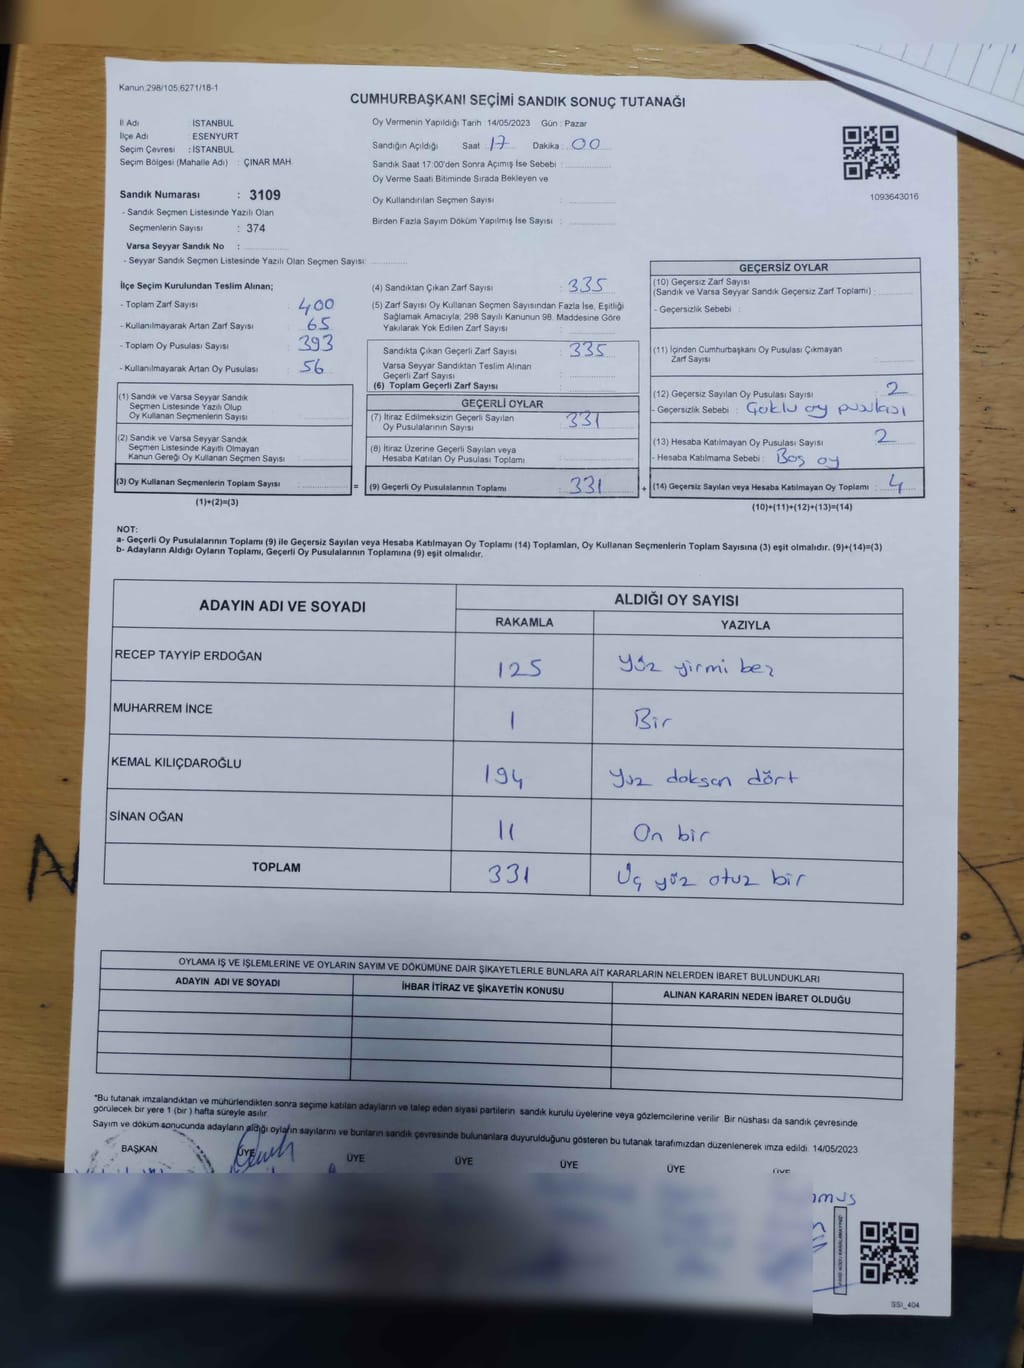 Kanun:298/105;6271/18-1
CUMHURBAŞKANI SEÇİMİ SANDIK SONUÇ TUTANAĞI
İl Adı : İSTANBUL
İlçe Adı : ESENYURT
Seçim Çevresi : İSTANBUL
Seçim Bölgesi (Mahalle Adı) : ÇINAR MAH.
Sandık Numarası : 3109
- Sandık Seçmen Listesinde Yazılı Olan
Seçmenlerin Sayısı : 374
Varsa Seyyar Sandık No :
- Seyyar Sandık Seçmen Listesinde Yazılı Olan Seçmen Sayısı:
Oy Vermenin Yapıldığı Tarih :14/05/2023 Gün : Pazar
Sandığın Açıldığı Saat : 17 Dakika : 00
Sandık Saat 17:00'den Sonra Açımış İse Sebebi :
Oy Verme Saati Bitiminde Sırada Bekleyen ve
Oy Kullandırılan Seçmen Sayısı :
Birden Fazla Sayım Döküm Yapılmış İse Sayısı :
1093643016
İlçe Seçim Kurulundan Teslim Alınan;
- Toplam Zarf Sayısı : 400
- Kullanılmayarak Artan Zarf Sayısı : 65
- Toplam Oy Pusulası Sayısı : 393
- Kullanılmayarak Artan Oy Pusulası : 56
(1) Sandık ve Varsa Seyyar Sandık
Seçmen Listesinde Yazılı Olup
Oy Kullanan Seçmenlerin Sayısı :
(2) Sandık ve Varsa Seyyar Sandık
Seçmen Listesinde Kayıtlı Olmayan
Kanun Gereği Oy Kullanan Seçmen Sayısı :
(3) Oy Kullanan Seçmenlerin Toplam Sayısı :
(1)+(2)=(3)
=
(4) Sandıktan Çıkan Zarf Sayısı : 335
(5) Zarf Sayısı Oy Kullanan Seçmen Sayısından Fazla İse, Eşitliği
Sağlamak Amacıyla; 298 Sayılı Kanunun 98. Maddesine Göre
Yakılarak Yok Edilen Zarf Sayısı :
Sandıkta Çıkan Geçerli Zarf Sayısı : 335
Varsa Seyyar Sandıktan Teslim Alınan
Geçerli Zarf Sayısı :
(6) Toplam Geçerli Zarf Sayısı :
GEÇERLİ OYLAR
(7) İtiraz Edilmeksizin Geçerli Sayılan
Oy Pusulalarının Sayısı : 331
(8) İtiraz Üzerine Geçerli Sayılan veya
Hesaba Katılan Oy Pusulası Toplamı :
(9) Geçerli Oy Pusulalarının Toplamı : 331
+
GEÇERSİZ OYLAR
(10) Geçersiz Zarf Sayısı
(Sandık ve Varsa Seyyar Sandık Geçersiz Zarf Toplamı) :
- Geçersizlik Sebebi :
(11) İçinden Cumhurbaşkanı Oy Pusulası Çıkmayan
Zarf Sayısı :
(12) Geçersiz Sayılan Oy Pusulası Sayısı : 2
- Geçersizlik Sebebi : Çoklu oy pusulası
(13) Hesaba Katılmayan Oy Pusulası Sayısı : 2
- Hesaba Katılmama Sebebi : Boş oy
(14) Geçersiz Sayılan veya Hesaba Katılmayan Oy Toplamı : 4
(10)+(11)+(12)+(13)=(14)
NOT:
a- Geçerli Oy Pusulalarının Toplamı (9) ile Geçersiz Sayılan veya Hesaba Katılmayan Oy Toplamı (14) Toplamları, Oy Kullanan Seçmenlerin Toplam Sayısına (3) eşit olmalıdır. (9)+(14)=(3)
b- Adayların Aldığı Oyların Toplamı, Geçerli Oy Pusulalarının Toplamına (9) eşit olmalıdır.
ADAYIN ADI VE SOYADI
ALDIĞI OY SAYISI
RAKAMLA YAZIYLA
RECEP TAYYİP ERDOĞAN 125 yüz yirmi beş
MUHARREM İNCE 1 Bir
KEMAL KILIÇDAROĞLU 194 yüz doksan dört
SİNAN OĞAN 11 On bir
TOPLAM 331 Üç yüz otuz bir
OYLAMA İŞ VE İŞLEMLERİNE VE OYLARIN SAYIM VE DÖKÜMÜNE DAİR ŞİKAYETLERLE BUNLARA AİT KARARLARIN NELERDEN İBARET BULUNDUKLARI
ADAYIN ADI VE SOYADI İHBAR İTİRAZ VE ŞİKAYETİN KONUSU ALINAN KARARIN NEDEN İBARET OLDUĞU
*Bu tutanak imzalandıktan ve mühürlendikten sonra seçime katılan adayların ve talep eden siyasi partilerin sandık kurulu üyelerine veya gözlemcilerine verilir. Bir nüshası da sandık çevresinde
görülecek bir yere 1 (bir ) hafta süreyle asılır.
Sayım ve döküm sonucunda adayların aldığı oyların sayılarını ve bunların sandık çevresinde bulunanlara duyurulduğunu gösteren bu tutanak tarafımızdan düzenlenerek imza edildi. 14/05/2023
BAŞKAN ÜYE ÜYE ÜYE ÜYE ÜYE ÜYE
SSI_404